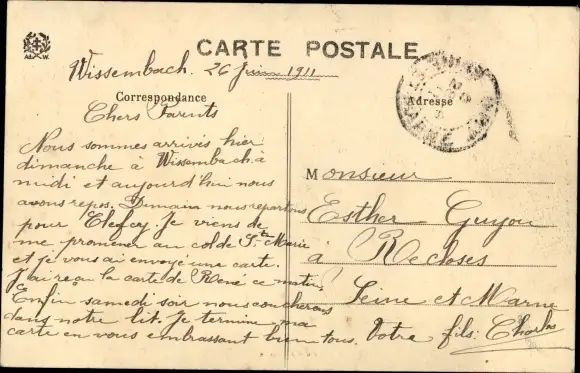 CARTE POSTALE
Wissembach. 26 Juin 1911
Correspondance
Adresse
Chers Parents
Nous sommes arrivés hier
dimanche à Wissembach à
midi et aujourd'hui nous
avons repos. Demain nous repartons
pour Elefcy. Je viens de
me promener au col de Ste Marie
et je vous ai envoyé une carte.
J'ai reçu la carte de René ce matin.
Enfin samedi soir nous coucherons
dans notre lit. Je termine ma
carte en vous embrassant bien tous. Votre fils: Charles
Monsieur
Esther Guyou
à Recloses
Seine et Marne